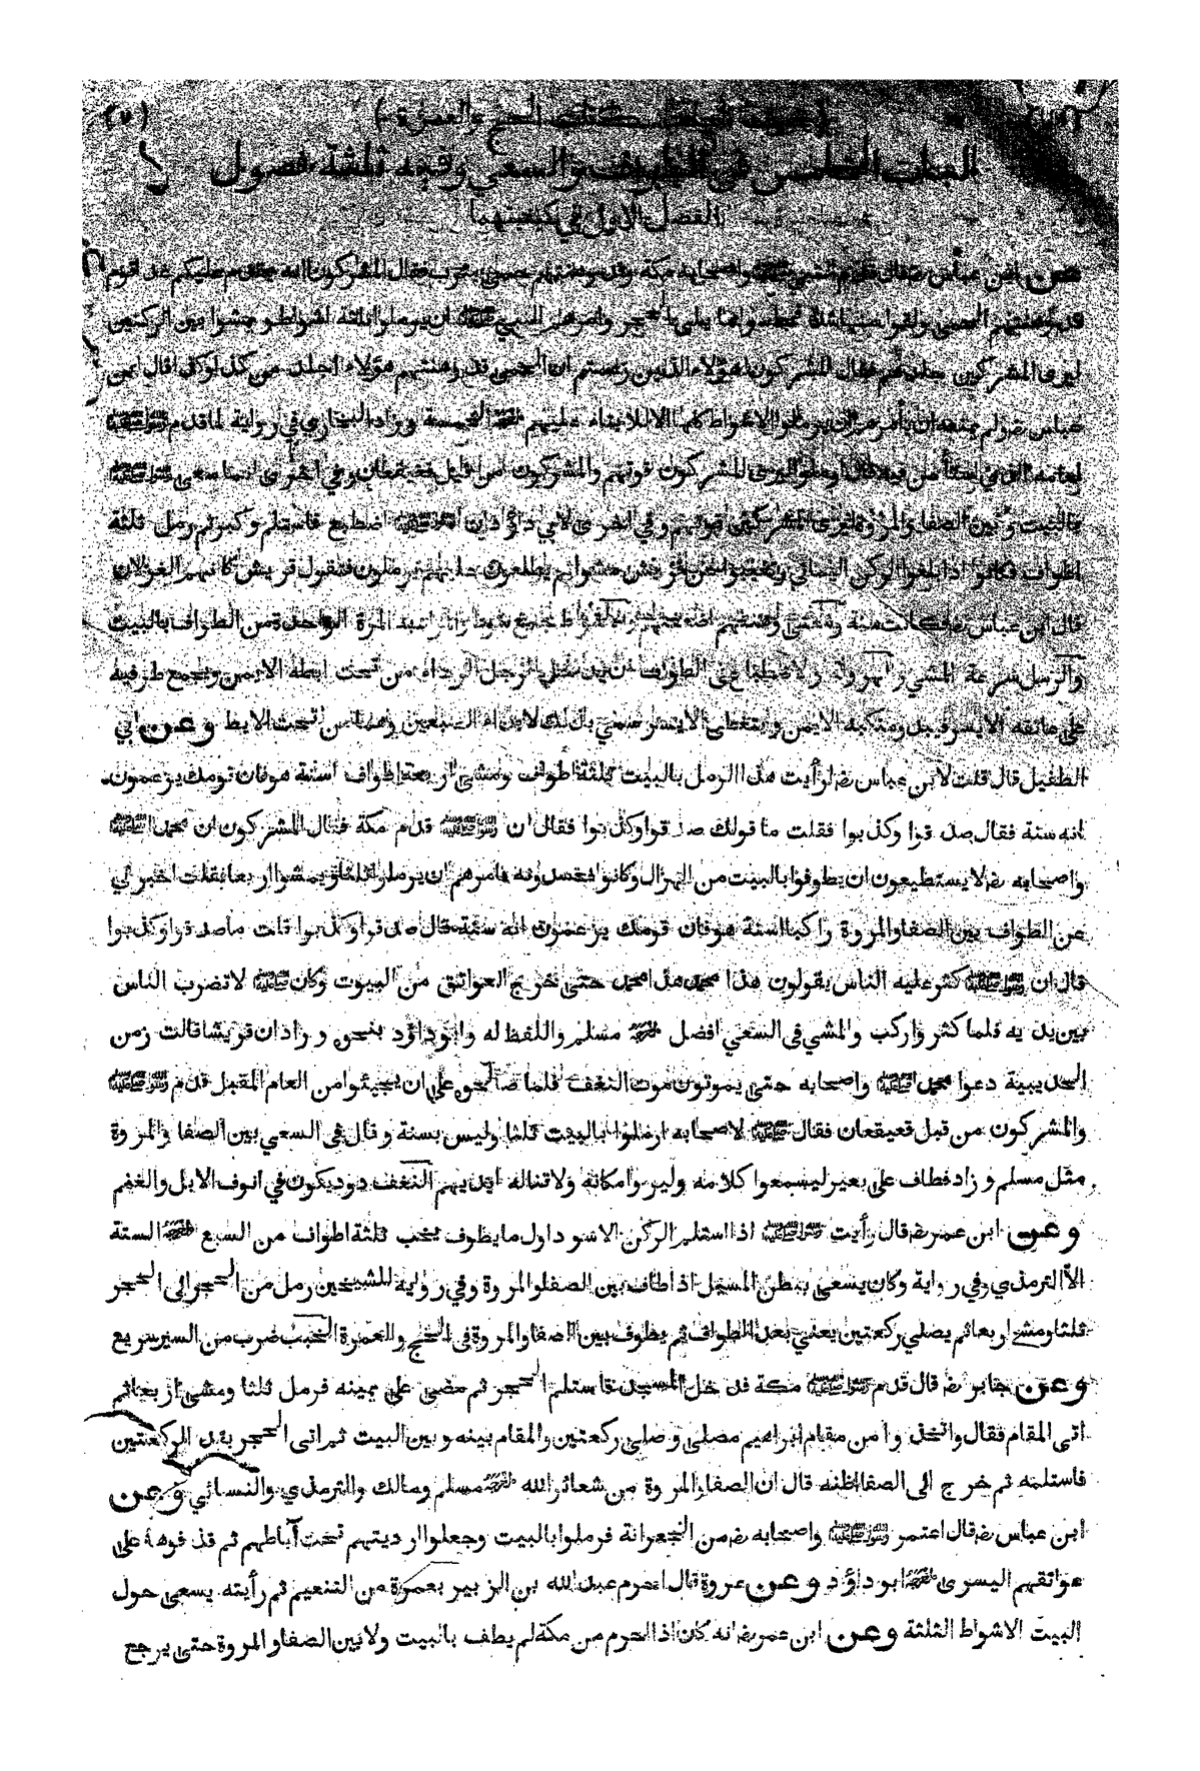 كتاب الحج والعمرة
الباب الخامس في الطواف والسعي وفيه ثلثة فصول
الفصل الاول في كيفيتهما
عن ابن عباس رض قال قدم ﷺ واصحابه مكة وقد وهنتهم حمى يثرب فقال المشركون انه يقدم عليكم غدا قوم
قد وهنتهم الحمى ولقوا منها شدة فجلسوا مما يلي الحجر وامرهم النبي ﷺ ان يرملوا ثلثة اشواط ويمشوا بين الركنين
ليرى المشركون جلدهم فقال المشركون هؤلاء الذين زعمتم ان الحمى قد وهنتهم هؤلاء اجلد من كذا وكذا قال ابن
عباس رض ولم يمنعه ان يأمرهم ان يرملوا الاشواط كلها الا للابقاء عليهم للخمسة وزاد البخاري في رواية لما قدم ﷺ
لعامه الذي استأمن فيه قال ارملوا ليرى المشركون قوتهم والمشركون من قبل قعيقعان وفي اخرى انما سعى ﷺ
بالبيت وبين الصفا والمروة ليرى المشركين قوته وفي اخرى لابي داؤد ان ﷺ اضطبع فاستلم وكبر ثم رمل ثلثة
اطواف فكانوا اذا بلغوا الركن اليماني وتغيبوا من قريش مشوا ثم يطلعون عليهم يرملون فتقول قريش كانهم الغزلان
قال ابن عباس رض فكانت سنة وهنتهم المرة الواحدة من الطواف بالبيت
والرمل سرعة المشي والهرولة والاضطباع في الطواف ان يدخل الرجل الرداء من تحت ابطه الايمن ويجمع طرفيه
على عاتقه الايسر فيبدو منكبه الايمن ويتغطى الايسر سمي بذلك لابداء الضبعين وهما ما تحت الابط وعن ابي
الطفيل قال قلت لابن عباس رض ارأيت هذا الرمل بالبيت ثلثة اطواف ومشي اربعة اطواف اسنة هو فان قومك يزعمون
انه سنة فقال صدقوا وكذبوا فقلت ما قولك صدقوا وكذبوا فقال ان ﷺ قدم مكة فقال المشركون ان محمدا ﷺ
واصحابه رض لا يستطيعون ان يطوفوا بالبيت من الهزال وكانوا يحسدونه فامرهم ان يرملوا ثلثا ويمشوا اربعا فقلت اخبرني
عن الطواف بين الصفا والمروة راكبا اسنة هو فان قومك يزعمون انه سنة قال صدقوا وكذبوا قلت ما صدقوا وكذبوا
قال ان ﷺ كثر عليه الناس يقولون هذا محمد هذا محمد حتى خرج العواتق من البيوت وكان ﷺ لا تضرب الناس
بين يديه فلما كثروا ركب والمشي في السعي افضل مسلم واللفظ له وابو داؤد بنحوه وزاد ان قريشا قالت زمن
الحديبية دعوا محمدا ﷺ واصحابه حتى يموتون موت النغف فلما صالحوه على ان يجيئوا من العام المقبل قدم ﷺ
والمشركون من قبل قعيقعان فقال ﷺ لاصحابه ارملوا بالبيت ثلثا وليس بسنة وقال في السعي بين الصفا والمروة
مثل مسلم وزاد فطاف على بعير ليسمعوا كلامه وليروا مكانه ولا تناله ايديهم النغف دود يكون في انوف الابل والغنم
وعن ابن عمر رض قال رأيت ﷺ اذا استلم الركن الاسود اول ما يطوف يخب ثلثة اطواف من السبع للستة
الا الترمذي وفي رواية وكان يسعى ببطن المسيل اذا طاف بين الصفا والمروة وفي رواية للشيخين رمل من الحجر الى الحجر
ثلثا ومشى اربعا ثم يصلي ركعتين يعني بعد الطواف ثم يطوف بين الصفا والمروة في الحج والعمرة الخبب ضرب من السير سريع
وعن جابر رض قال قدم ﷺ مكة فدخل المسجد فاستلم الحجر ثم مضى على يمينه فرمل ثلثا ومشى اربعا ثم
اتى المقام فقال واتخذوا من مقام ابراهيم مصلى وصلى ركعتين والمقام بينه وبين البيت ثم اتى الحجر بعد الركعتين
فاستلمه ثم خرج الى الصفا اظنه قال ان الصفا والمروة من شعائر الله مسلم ومالك والترمذي والنسائي وعن
ابن عباس رض قال اعتمر ﷺ واصحابه رض من الجعرانة فرملوا بالبيت وجعلوا ارديتهم تحت آباطهم ثم قذفوها على
عواتقهم اليسرى ابو داؤد وعن عروة قال احرم عبد الله بن الزبير بعمرة من التنعيم ثم رأيته يسعى حول
البيت الاشواط الثلثة وعن ابن عمر رض انه كان اذا احرم من مكة لم يطف بالبيت ولا بين الصفا والمروة حتى يرجع